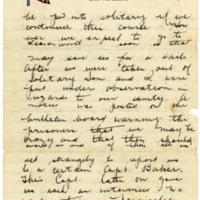 be put into solitary if we
continue this course. Now
we expect to go to
Leavenworth soon & that
may save us for a while
After we were taken out of
Solitary Sam and I were
put under observation in
regards to our sanity. A
notice was posted on the
bulletin board warning the
prisoners that we may be
crazy and that they should
and if they
act strangely to report us
to a certain Capt. Baker.
This Capt. later on gave
us each an interview